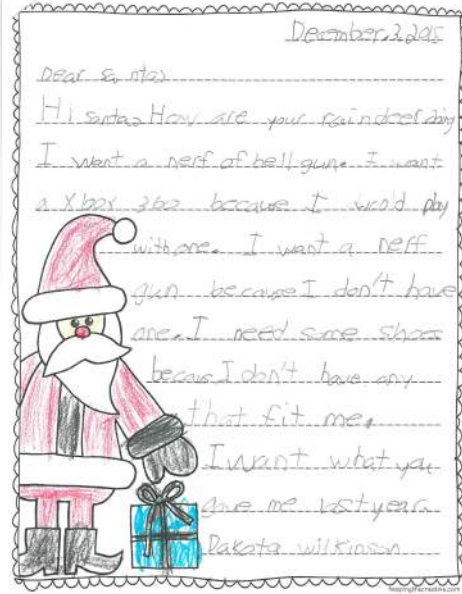 December, 3, 2015
Dear santa
Hi santa How are your raindeer doing
I want a nerf gun. I want
a Xbox 360 because I would play
with one. I want a nerf
gun because I don't have
one. I need some shoes
becaus I don't have any
that fit me.
I want what you
gave me last year.
Dakota wilkinson
keepingitkreative.com